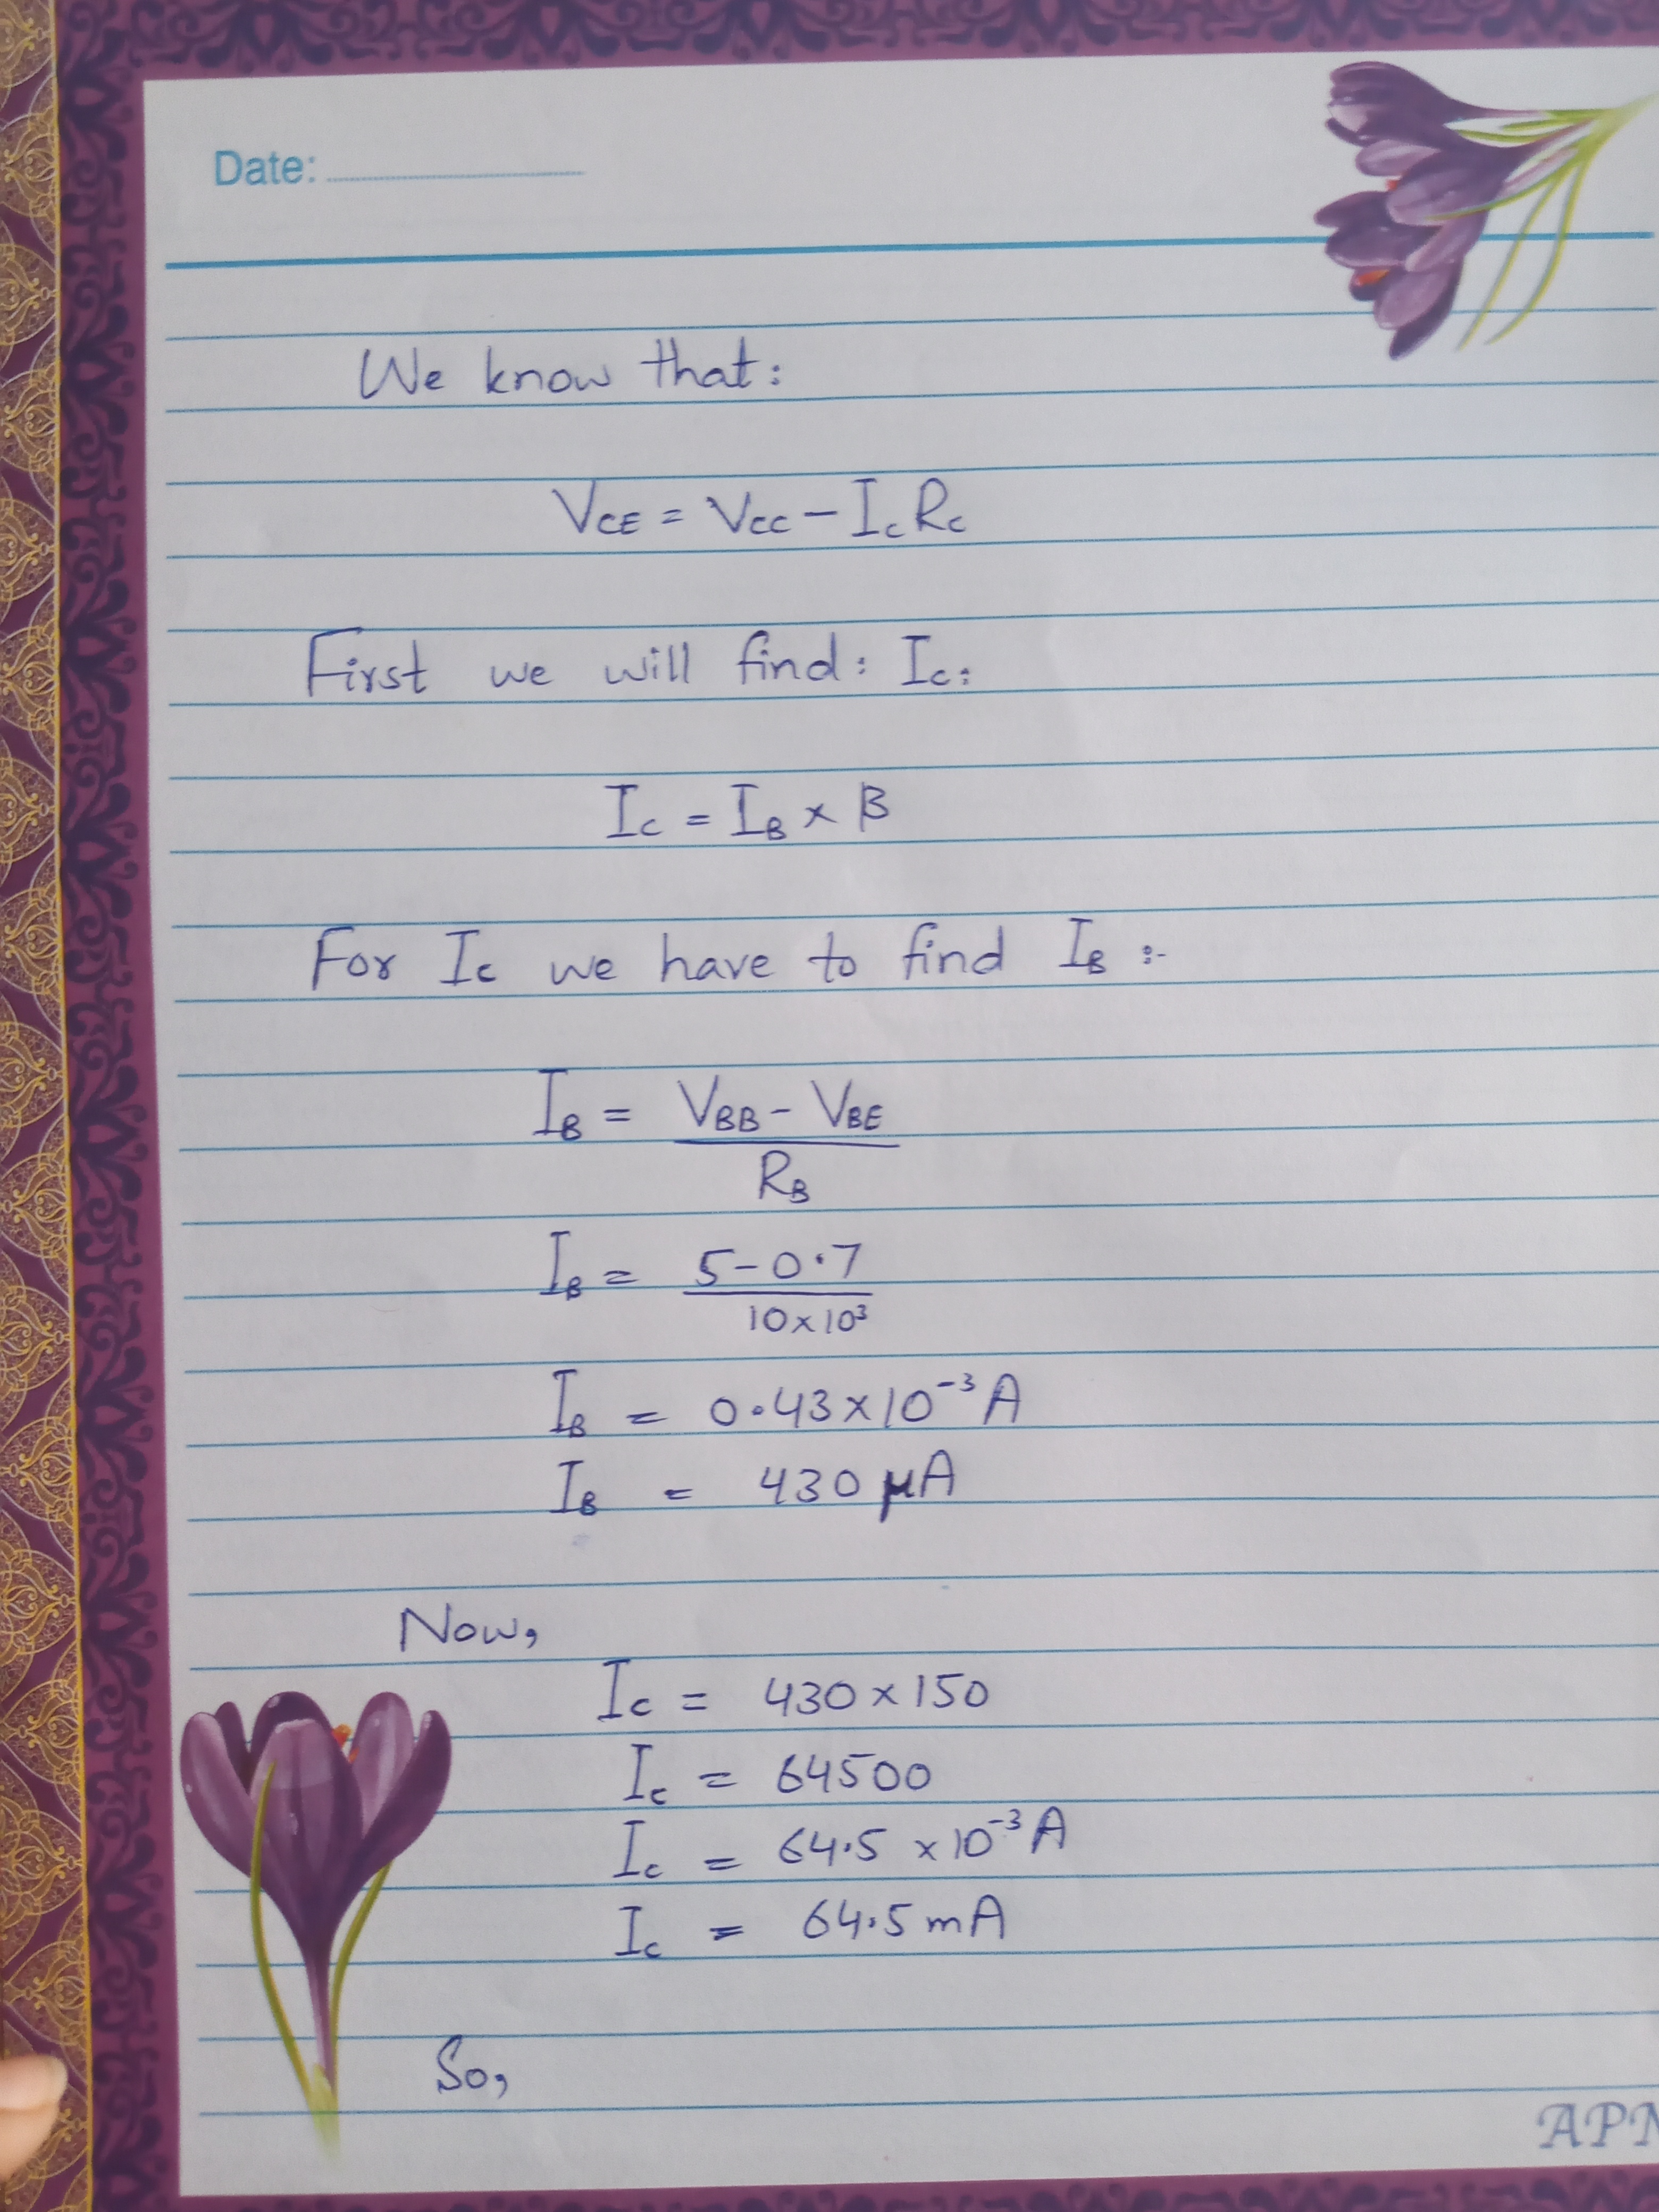 Date:
We know that:
VCE = VCC - IC RC
First we will find: IC:
IC = IB × β
For IC we have to find IB :-
IB = VBB - VBE
RB
IB = 5-0.7
10×10³
IB = 0.43×10⁻³A
IB = 430 µA
Now,
IC = 430×150
IC = 64500
IC = 64.5 ×10⁻³A
IC = 64.5mA
So,